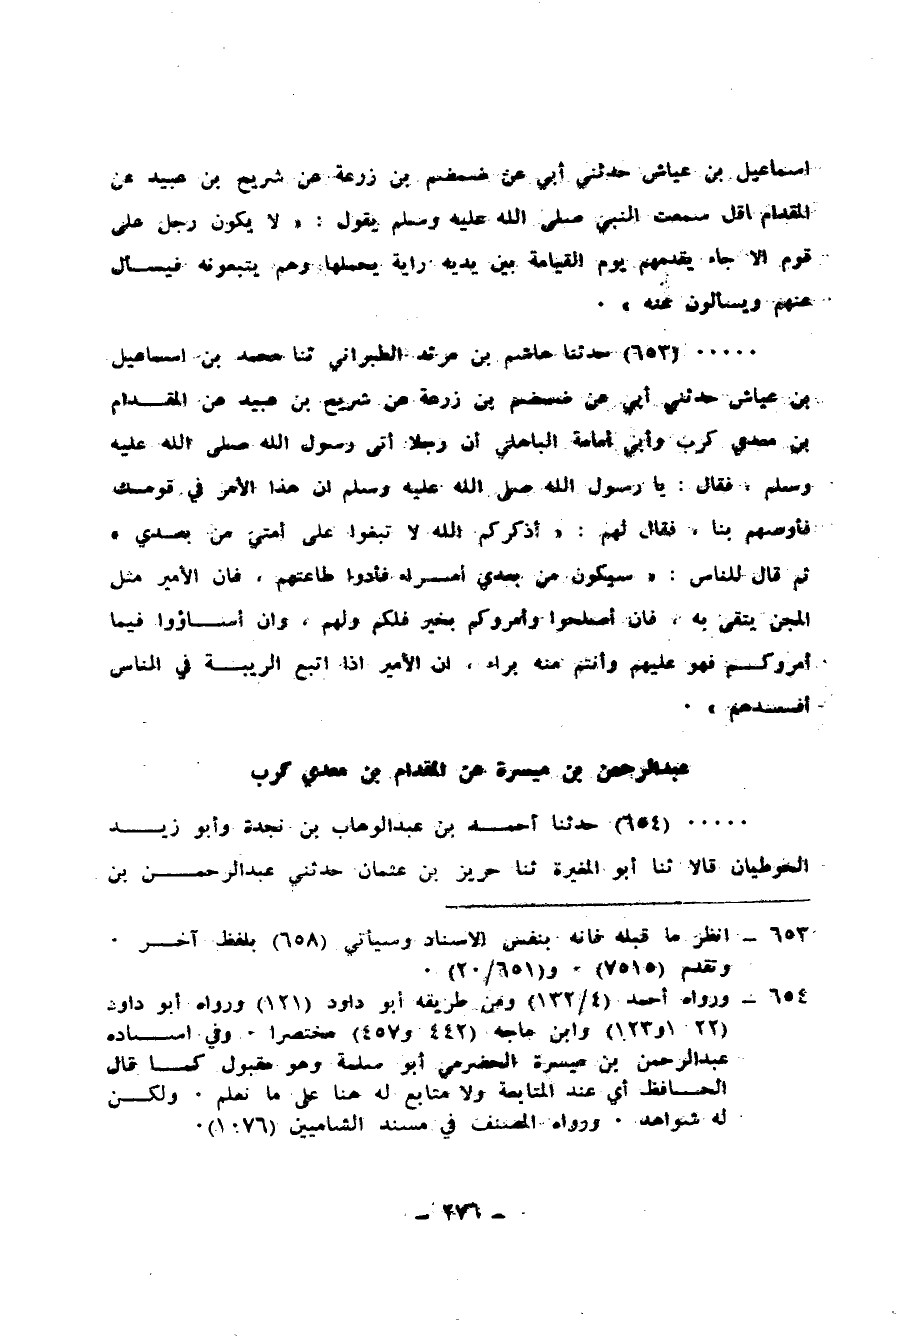 اسماعيل بن عياش حدثني أبي عن ضمضم بن زرعة عن شريح بن عبيد عن
المقدام اقل سمعت النبي صلى الله عليه وسلم يقول : « لا يكون رجل على
قوم الا جاء يقدمهم يوم القيامة بين يديه راية يحملها وهم يتبعونه فيسأل
عنهم ويسالون عنه » ٠
٠٠٠٠٠ (٦٥٣) حدثنا هاشم بن مرثد الطبراني ثنا محمد بن اسماعيل
بن عياش حدثني أبي عن ضمضم بن زرعة عن شريح بن عبيد عن المقدام
بن معدي كرب وأبي أمامة الباهلي أن رجلا أتى رسول الله صلى الله عليه
وسلم ، فقال : يا رسول الله صلى الله عليه وسلم ان هذا الأمر في قومك
فأوصهم بنا ، فقال لهم : « أذكركم الله لا تبغوا على أمتي من بعدي »
ثم قال للناس : « سيكون من بعدي أمراء فأدوا طاعتهم ، فان الأمير مثل
المجن يتقى به ، فان أصلحوا وأمروكم بخير فلكم ولهم ، وان أساؤوا فيما
أمروكم فهو عليهم وأنتم منه براء ، ان الأمير اذا اتبع الريبة في الناس
أفسدهم » ٠
عبدالرحمن بن ميسرة عن المقدام بن معدي كرب
٠٠٠٠٠ (٦٥٤) حدثنا أحمد بن عبدالوهاب بن نجدة وأبو زيد
الحوطيان قالا ثنا أبو المغيرة ثنا حريز بن عثمان حدثني عبدالرحمن بن
٦٥٣ ــ انظر ما قبله فانه بنفس الاسناد وسيأتي (٦٥٨) بلفظ آخر ٠
وتقدم (٧٥١٥) ٠ و(٢٠/٦٥١) ٠
٦٥٤ ــ ورواه أحمد (١٣٢/٤) ومن طريقه أبو داود (١٢١) ورواه أبو داود
(٢٢ ١و١٢٣) وابن ماجه (٤٤٢ و٤٥٧) مختصرا ٠ وفي اسناده
عبدالرحمن بن ميسرة الحضرمي أبو سلمة وهو مقبول كما قال
الحافظ أي عند المتابعة ولا متابع له هنا على ما نعلم ٠ ولكن
له شواهد ٠ ورواه المصنف في مسند الشاميين (١٠٧٦)٠
ــ ٢٧٦ ــ